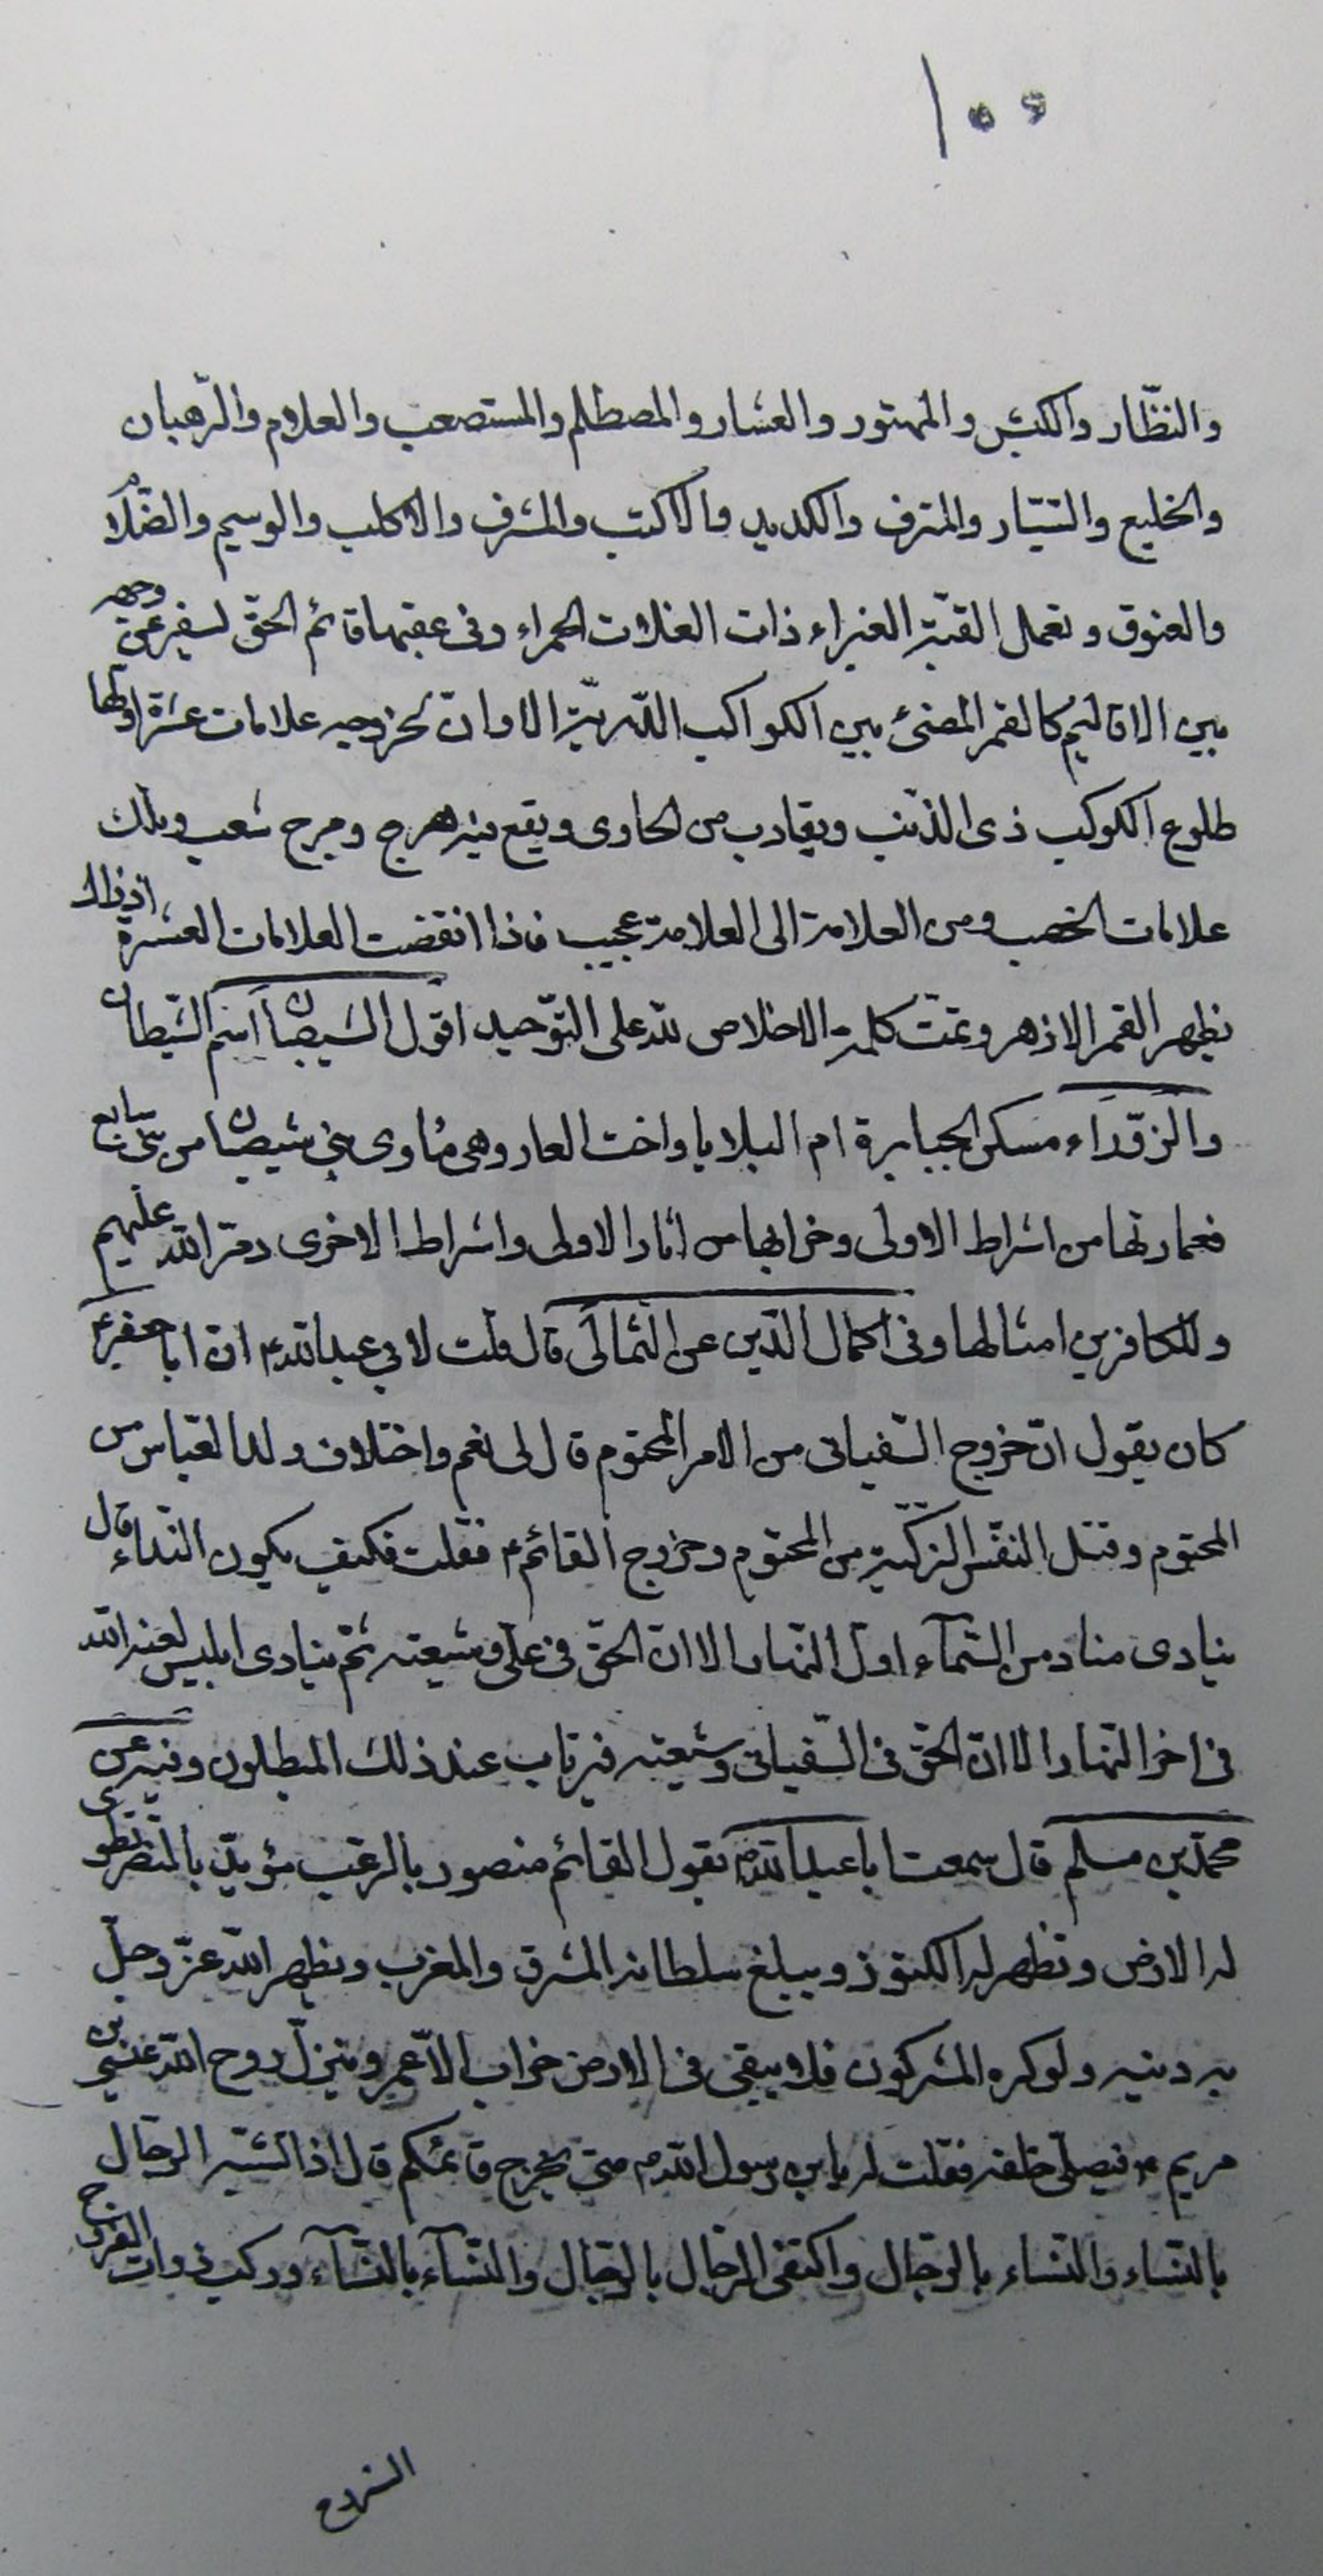 ١٠٠
والنظّار والكبش والمهتور والعشار والمصطلم والمستصعب والعلام والرّهبان
والخليع والسّيّار والمترف والكديد والاكتب والمشرف والاكلب والوسيم والضّلام
والعنوق وتعمل القبّة الغبراء ذات الغلات الحمراء وفى عقبها قائم الحقّ يسفر عن وجهه
بين الاقاليم كالقمر المضئ بين الكواكب الدّرّيّة الا وانّ لخروجه علامات عشرة اوّلها
طلوع الكوكب ذى الذّنب ويقارب من الحاوى ويقع فيه هرج ومرج شعب وتلك
علامات الخصب ومن العلامة الى العلامة عجيب فاذا انقضت العلامات العشرة اذ ذاك
يظهر القمر الازهر وتمّت كلمة الاخلاص لله على التوّحيد اقول الشيصبان اسم الشيطان
والزّوراء مسكن الجبابرة ام البلايا واخت العار وهى مأوى بنى شيصبان من بنى سابع
فعمارتها من اشراط الاولى وخرابها من اثار الاولى واشراط الاخرى دمّر الله عليهم
وللكافرين امثالها وفى اكمال الدّين عن الثّمالى قال قلت لابي عبدالله ع ان ابا جعفر ع
كان يقول انّ خروج السّفيانى من الامر المحتوم قال لى نعم واختلاف ولد العبّاس من
المحتوم وقتل النفّس الزكّيّة من المحتوم وخروج القائم ع فقلت فكيف يكون النّداء قال
ينادى مناد من السّمآء اوّل النّهار الا انّ الحقّ فى علىّ وشيعته ثمّ ينادى ابليس لعنه الله
فى اخر النّهار الا انّ الحقّ فى السّفيانى وشيعته فيرتاب عند ذلك المبطلون وفيه عن
محمّد بن مسلم قال سمعت ابا عبدالله ع يقول القائم منصور بالرعّب مؤيّد بالنّصر تطوى
له الارض وتظهر له الكنوز ويبلغ سلطانه المشرق والمغرب ويظهر الله عزّ وجلّ
به دينه ولو كره المشركون فلا يبقى فى الارض خراب الاّ عمر وينزل روح الله عيسى بن
مريم ع فيصلّى خلفه فقلت له يابن رسول الله ص متى يخرج قائمكم قال اذا تشبّه الرجّال
بالنّساء والنّساء بالرّجال واكتفى الرّجال بالرّجال والنّسآء بالنّسآء وركب ذوات الفروج
السّروج